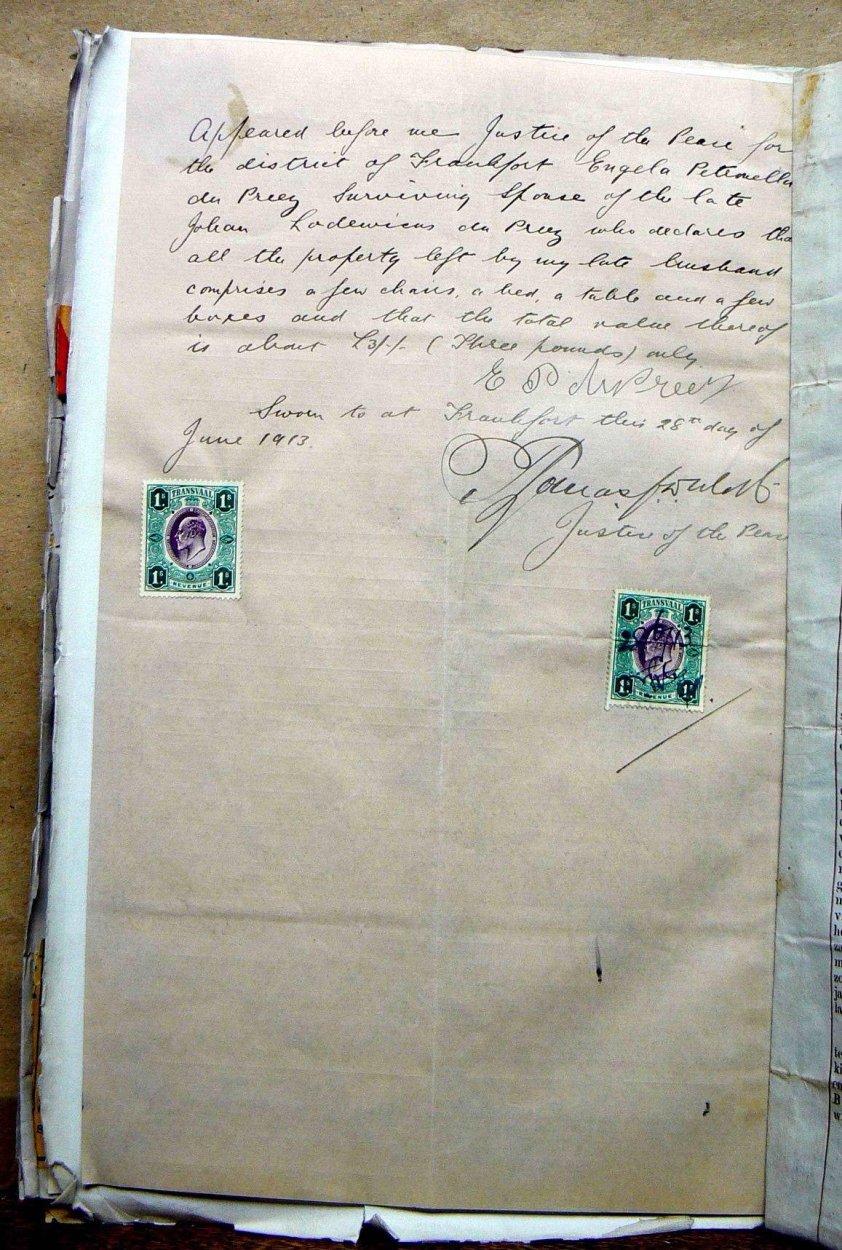 Appeared before me Justice of the Peace for
the district of Frankfort Engela Petronella
du Preez Surviving Spouse of the late
Johan Lodewicus du Preez who declares tha
all the property left by my late husband
comprises a few chairs, a bed, a table and a few
boxes and that the total value thereof
is about £3/-/- (Three pounds) only
E P du Preez
Sworn to at Frankfort this 28th day of
June 1913
Justice of the Peace
1S 1S
TRANSVAAL
1S 1S
REVENUE
1S 1S
TRANSVAAL
1S 1S
REVENUE